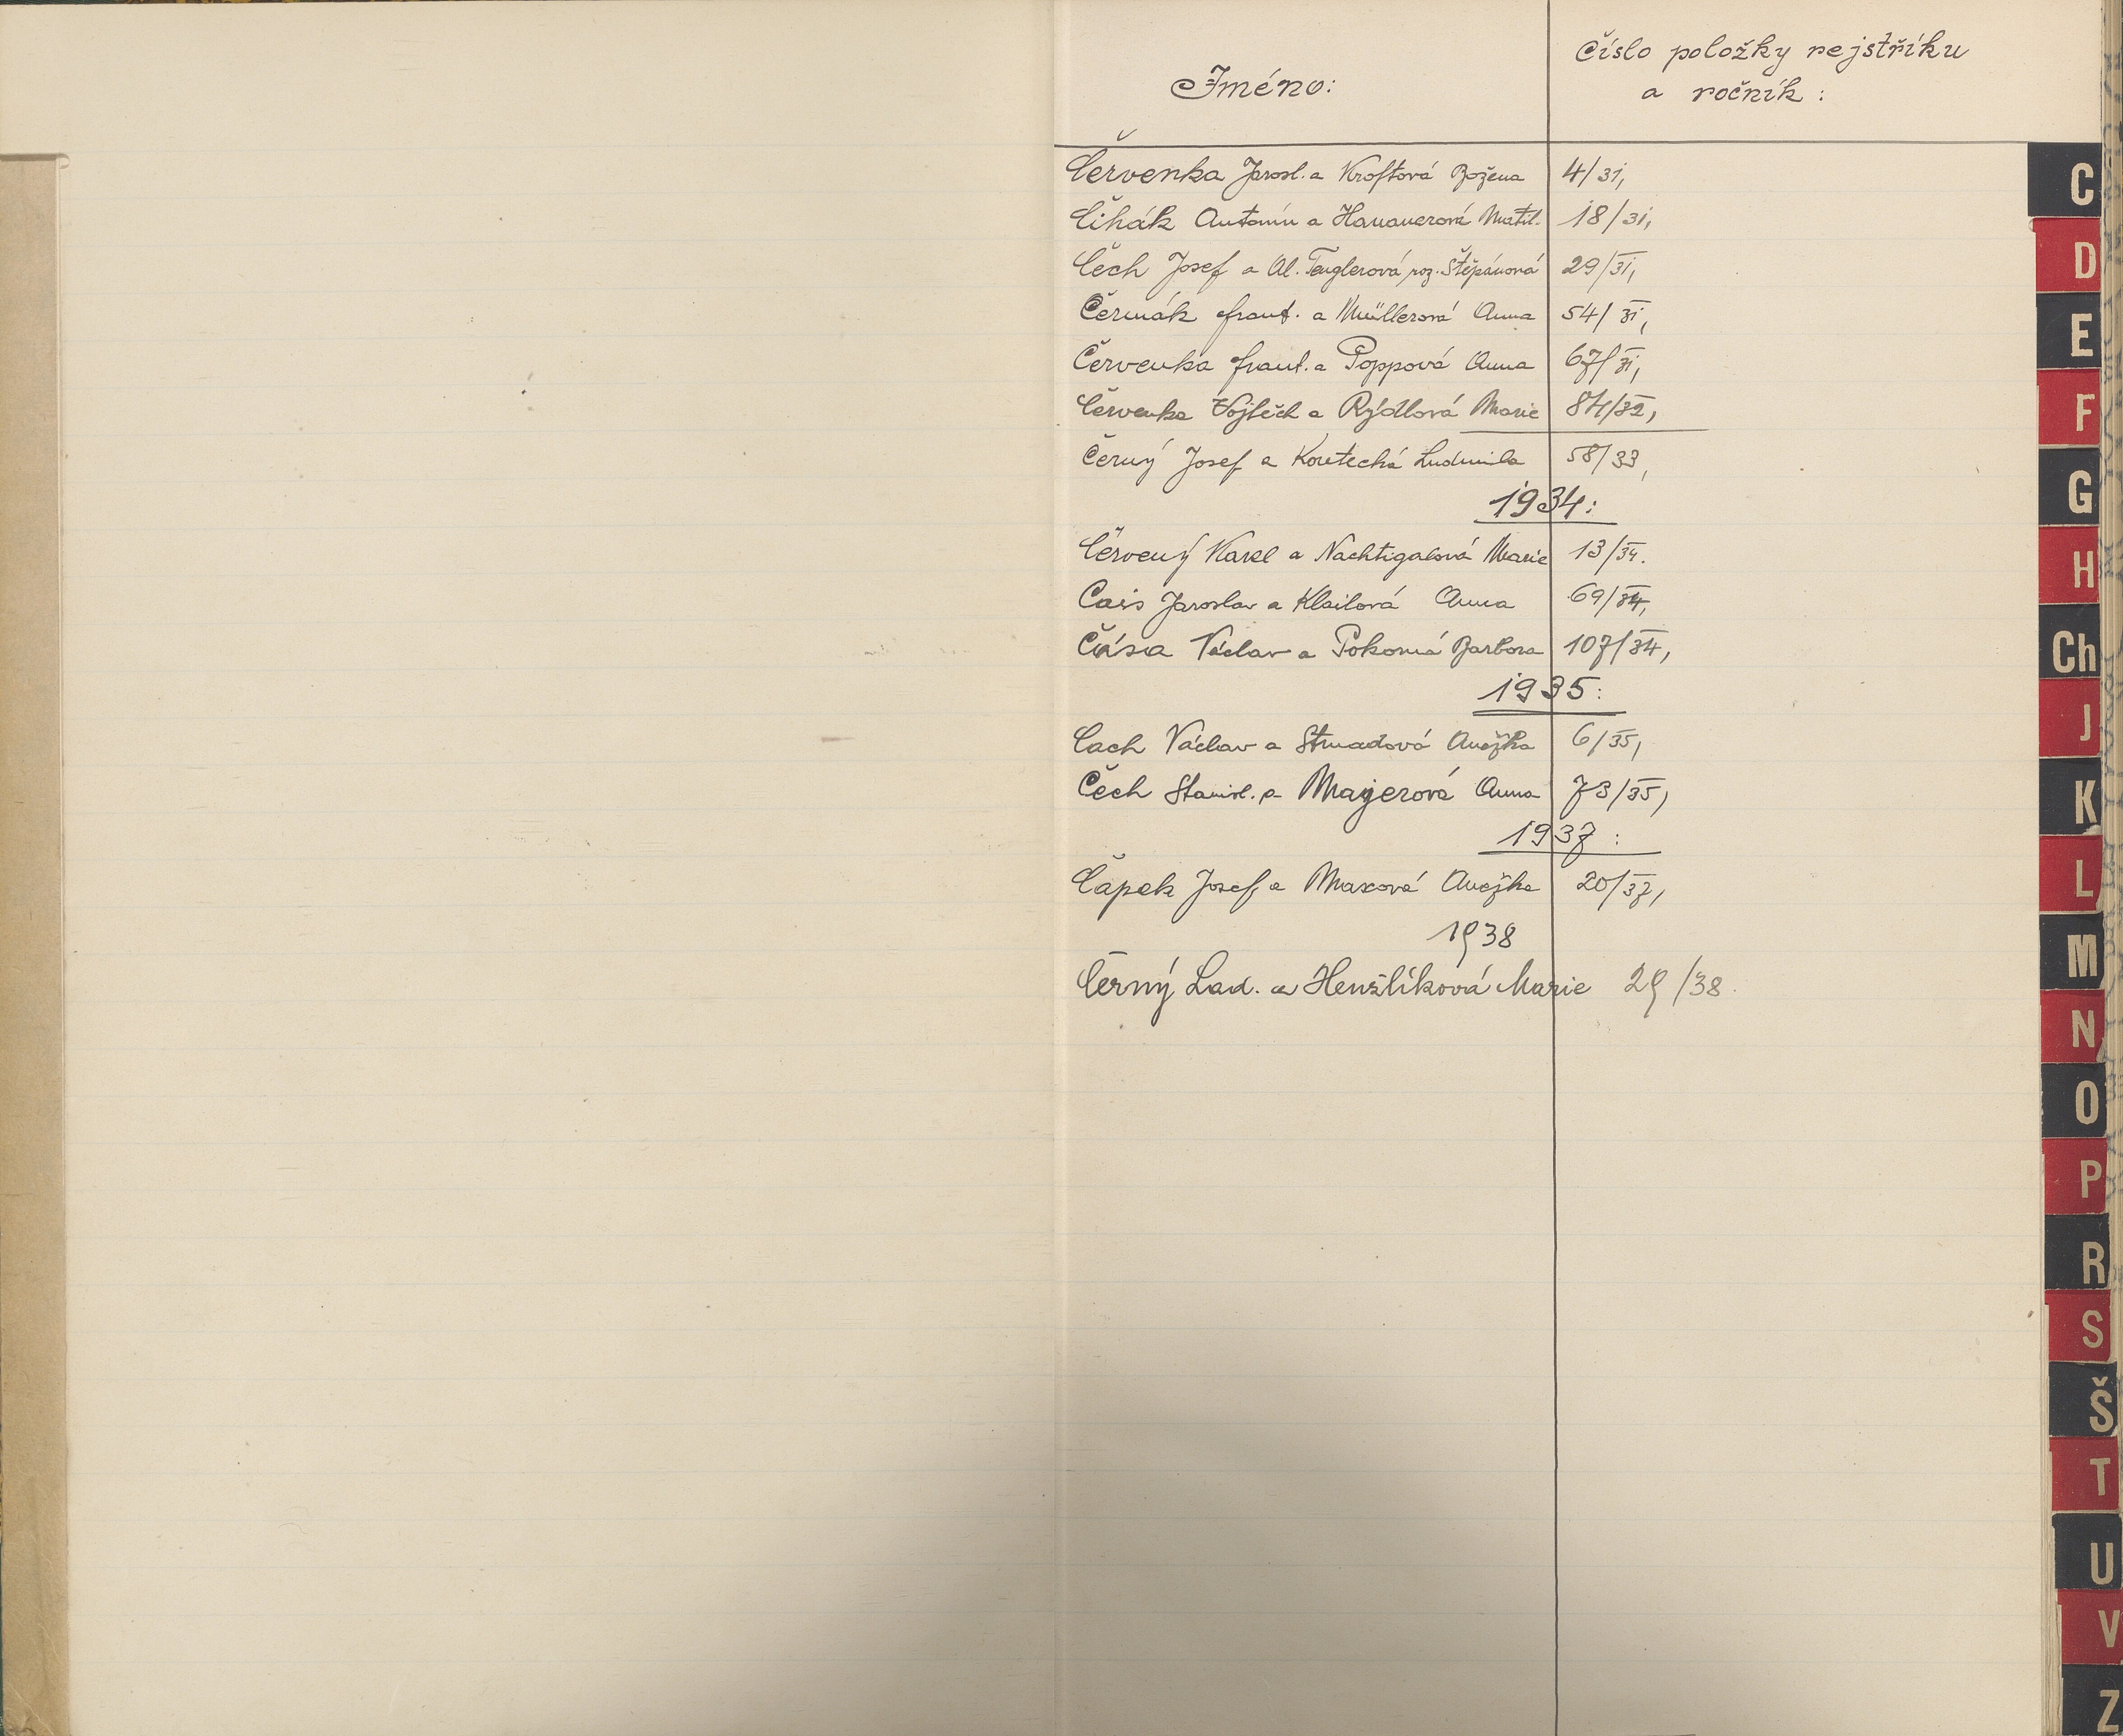 Jméno:
Číslo položky rejstříku
a ročník:
Červenka Jarosl. a Kroftová Božena 4/31,
Čihák Antonín a Hanauerová Matil. 18/31,
Čech Josef a Al. Tenglerová roz. Štěpánová 29/31,
Čermák Frant. a Müllerová Anna 54/31,
Červenka Frant. a Poppová Anna 67/31,
Červenka Vojtěch a Rýdlová Marie 84/32,
Černý Josef a Ludmila 58/33,
1934:
Červený Karel a Nachtigalová Marie 13/34.
Cais Jaroslav a Klailová Anna 69/34,
Čása Václav a Pokorná Barbora 107/34,
1935:
Cach Václav a Strnadová Anežka 6/35,
Čech Stanisl. a Mayerová Anna 73/35,
1937:
Čapek Josef a Maxová Anežka 20/37,
1938
Černý Lad. a Henžlíková Marie 29/38.
C
D
E
F
G
H
Ch
J
K
L
M
N
O
P
R
S
Š
T
U
V
Z